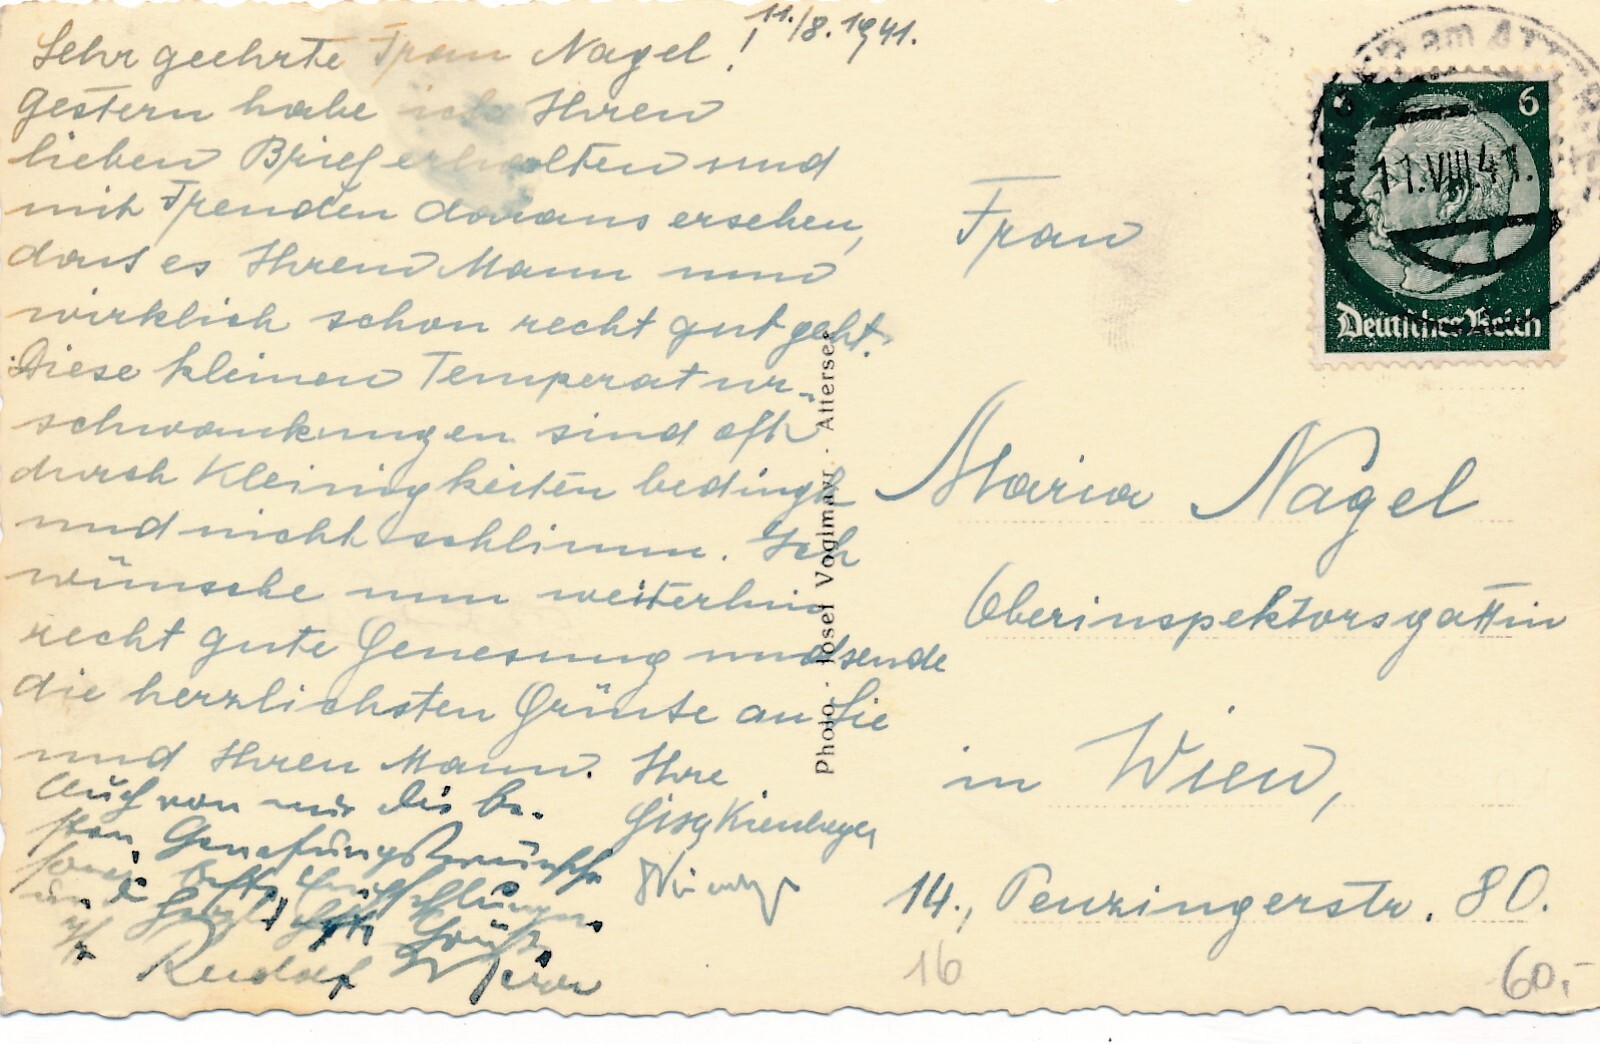 11./8.1941.
Sehr geehrte Frau Nagel!
Gestern habe ich Ihren
lieben Brief erhalten und
mit Freuden daraus ersehen,
dass es Ihrem Mann nun
wirklich schon recht gut geht.
Diese kleinen Temperatur-
schwankungen sind oft
durch Kleinigkeiten bedingt
und nicht schlimm. Ich
wünsche nun weiterhin
recht gute Genesung und sende
die herzlichsten Grüsse an Sie
und Ihren Mann. Ihre
Auch von mir die be-
sten Genesungswünsche
sowie beste Empfehlungen
und herzlichste Grüße
Rudolf
Photo · Josef Voglmayr · Attersee
am ATTERSEE
11.VIII.41.
6 6
Deutsches Reich
Frau
Maria Nagel
Oberinspektorsgattin
in Wien,
14., Penzingerstr. 80.
16
60,-